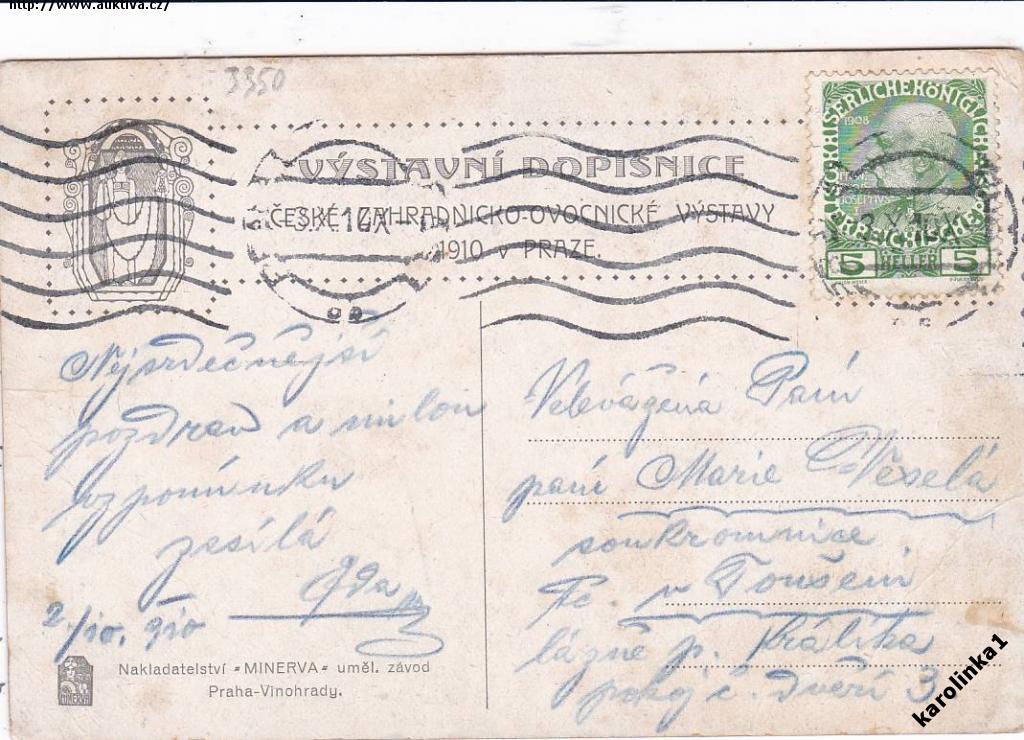 http://www.auktiva.cz/
3350
VÝSTAVNÍ DOPISNICE
ČESKÉ ZAHRADNICKO-OVOCNICKÉ VÝSTAVY
1910 v PRAZE.
1908
5 HELLER 5
Nejsrdečnější
pozdrav a milou
vzpomínku
zesílá
Eda
2./10. 910
Velevážená Paní
paní Marie Veselá
soukromnice
v Toušeni
lázně p. Králíka
pokoj č. dveří 3
Nakladatelství "MINERVA" uměl. závod
Praha-Vinohrady.
MINERVA
karolinka1